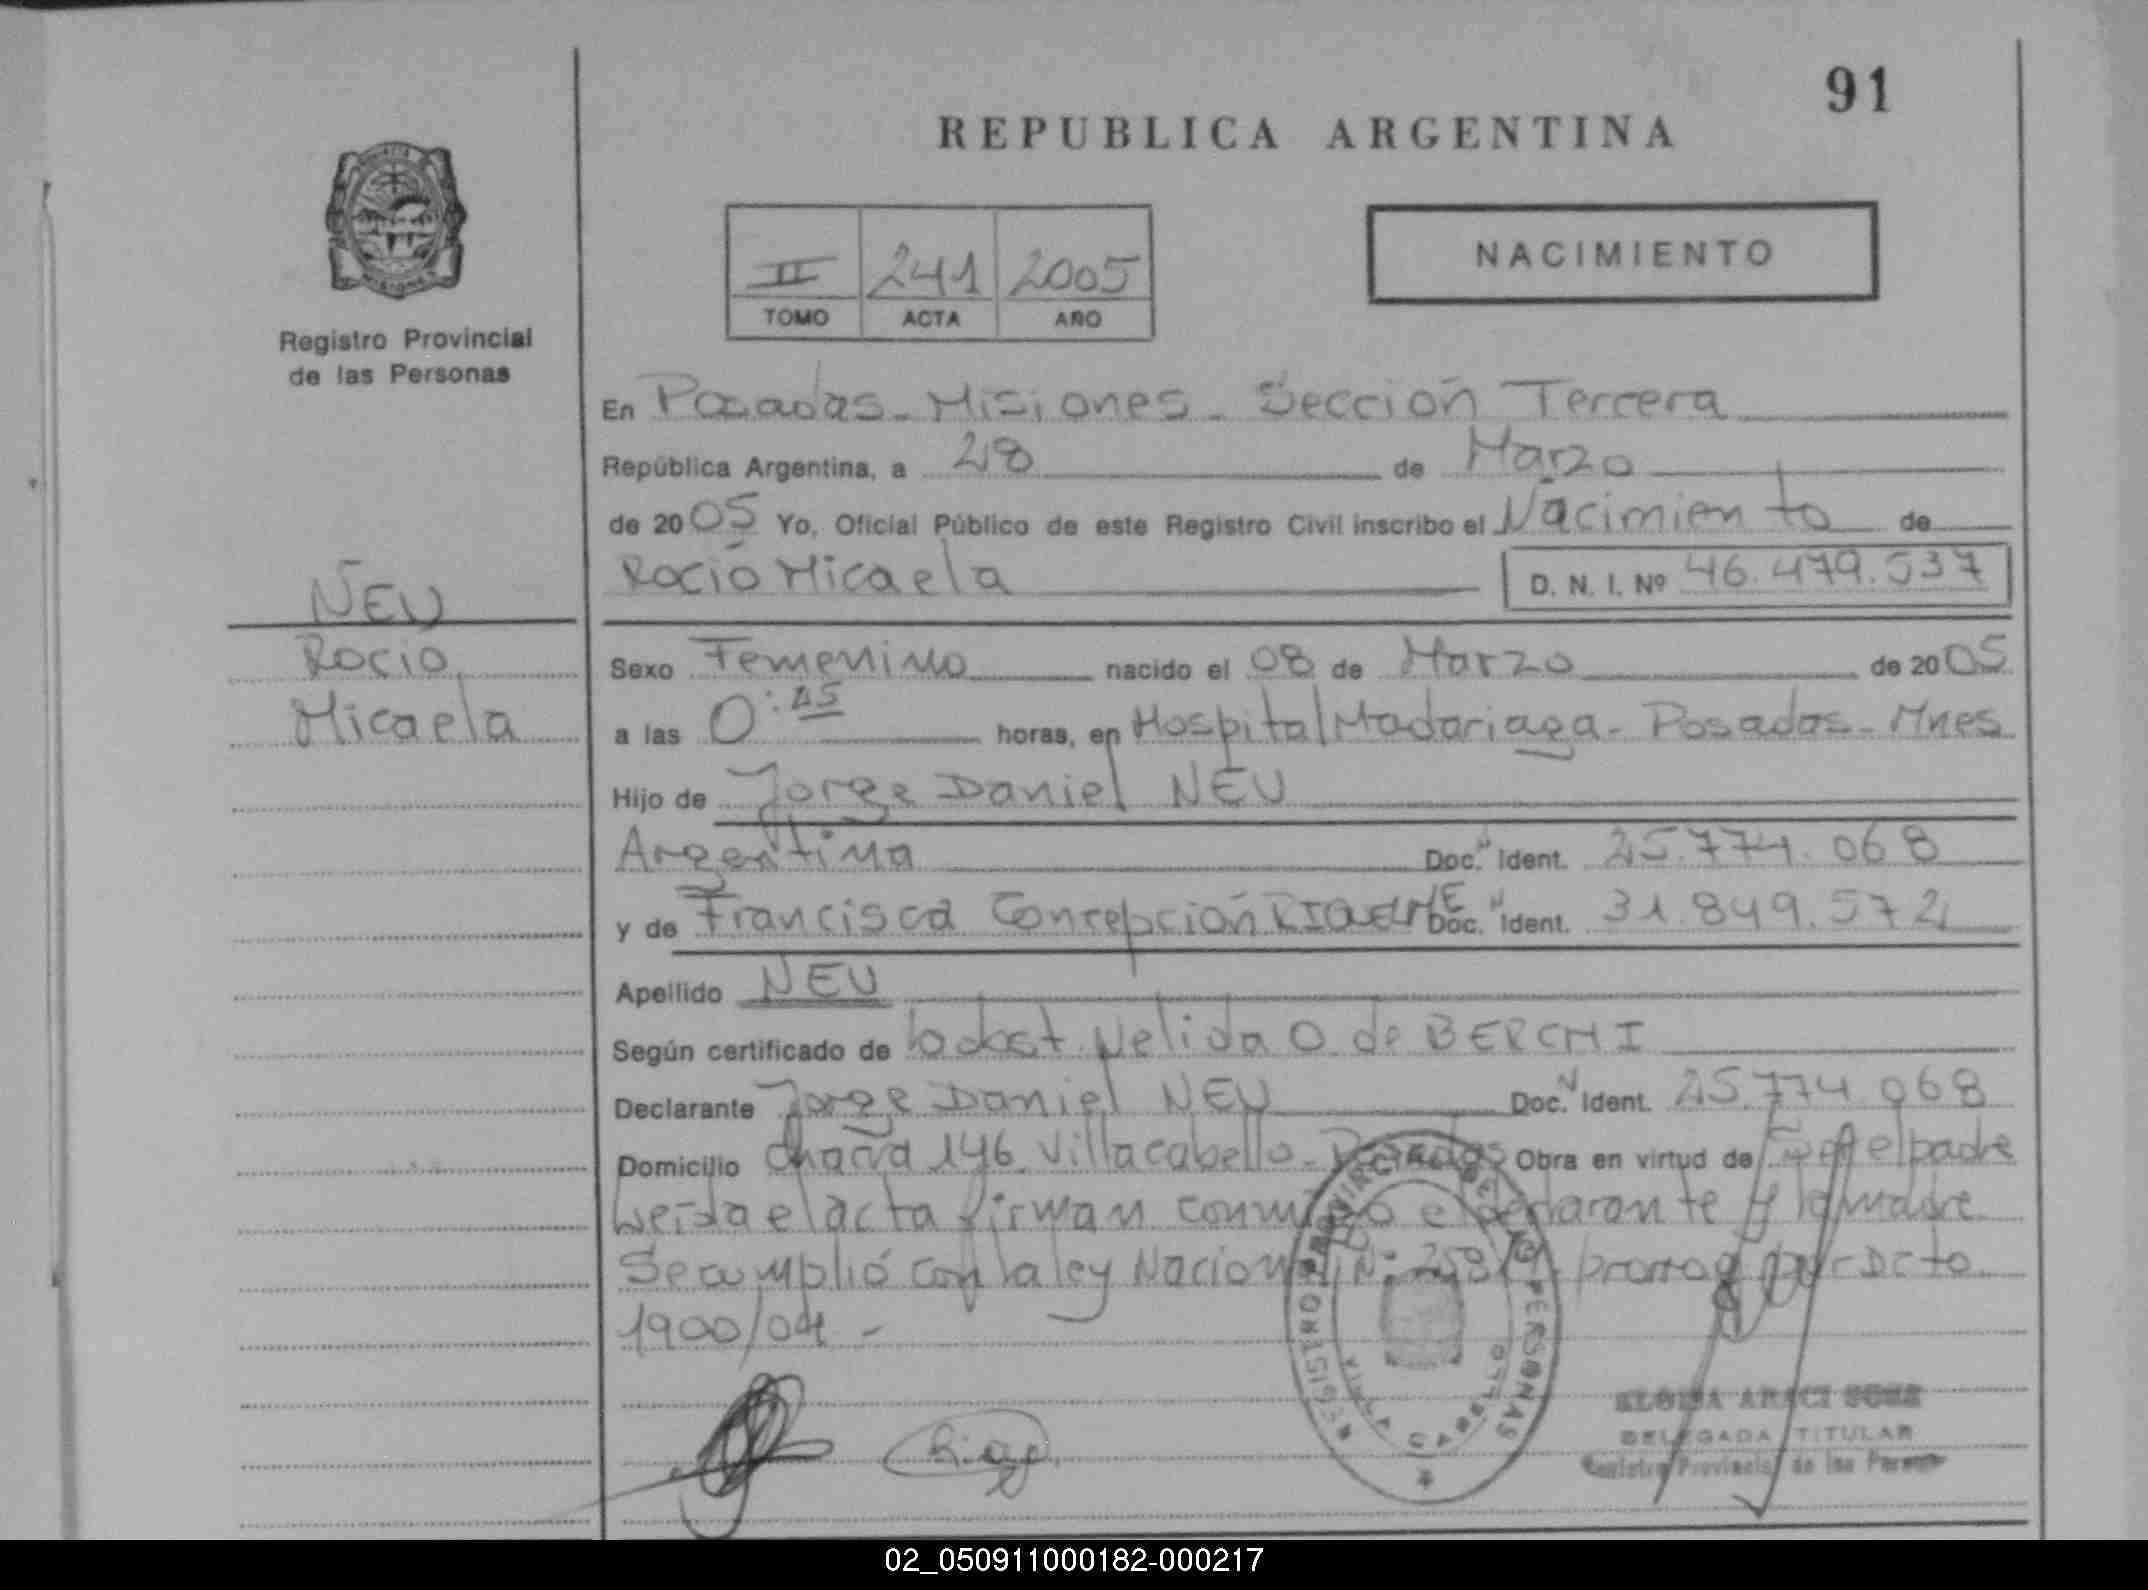 91
REPUBLICA ARGENTINA
NACIMIENTO
II 241 2005
TOMO ACTA AÑO
Registro Provincial
de las Personas
En Posadas - Misiones - Sección Tercera
República Argentina, a 28 de Marzo
de 2005 Yo, Oficial Público de este Registro Civil inscribo el Nacimiento de
Rocío Micaela D. N. I. Nº 46.479.537
NEU
Rocio
Micaela
Sexo Femenino nacido el 08 de Marzo de 2005
a las 0:45 horas, en Hospital Madariaga - Posadas - Mnes
Hijo de Jorge Daniel NEU
Argentina Doc. Ident. 25.774.068
y de Francisca Concepción RIQUELME Doc. Ident. 31.849.572
Apellido NEU
Según certificado de la obst. Nelida O. de BERCHI
Declarante Jorge Daniel NEU Doc. Ident. 25.774.068
Domicilio Chañá 146 Villa cabello - Posadas Obra en virtud de Ser el padre
Leída el acta firman conmigo el declarante y la madre
Se cumplió con la ley Nacional Nº prorrog por Dcto
1900/04 -
REGISTRO PROVINCIAL DE LAS PERSONAS
VILLA CABELLO
DELEGADA TITULAR
Registro Provincial de las Personas
02_050911000182-000217